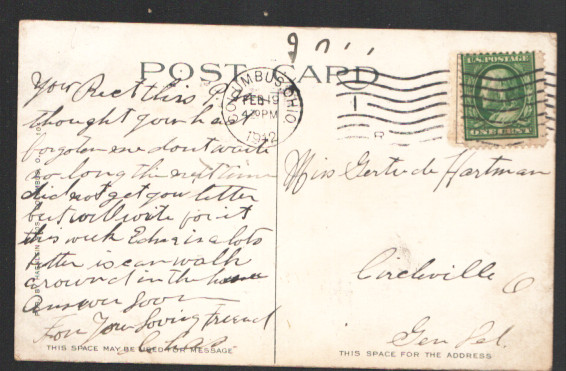 POST CARD
COLUMBUS, OHIO.
FEB 19
4 PM
1912
1
U.S. POSTAGE
ONE CENT
Your Rec't this P.M.
thought you had
forgoten me dont waite
so long the next time
did not get you letter
but will write for it
this week Edna is a lots
better is can walk
around in the house
answer soon
From Your Loving Friend
Miss Gertrude Hartman
Circleville O
Gen Del.
THIS SPACE MAY BE USED FOR MESSAGE
THIS SPACE FOR THE ADDRESS